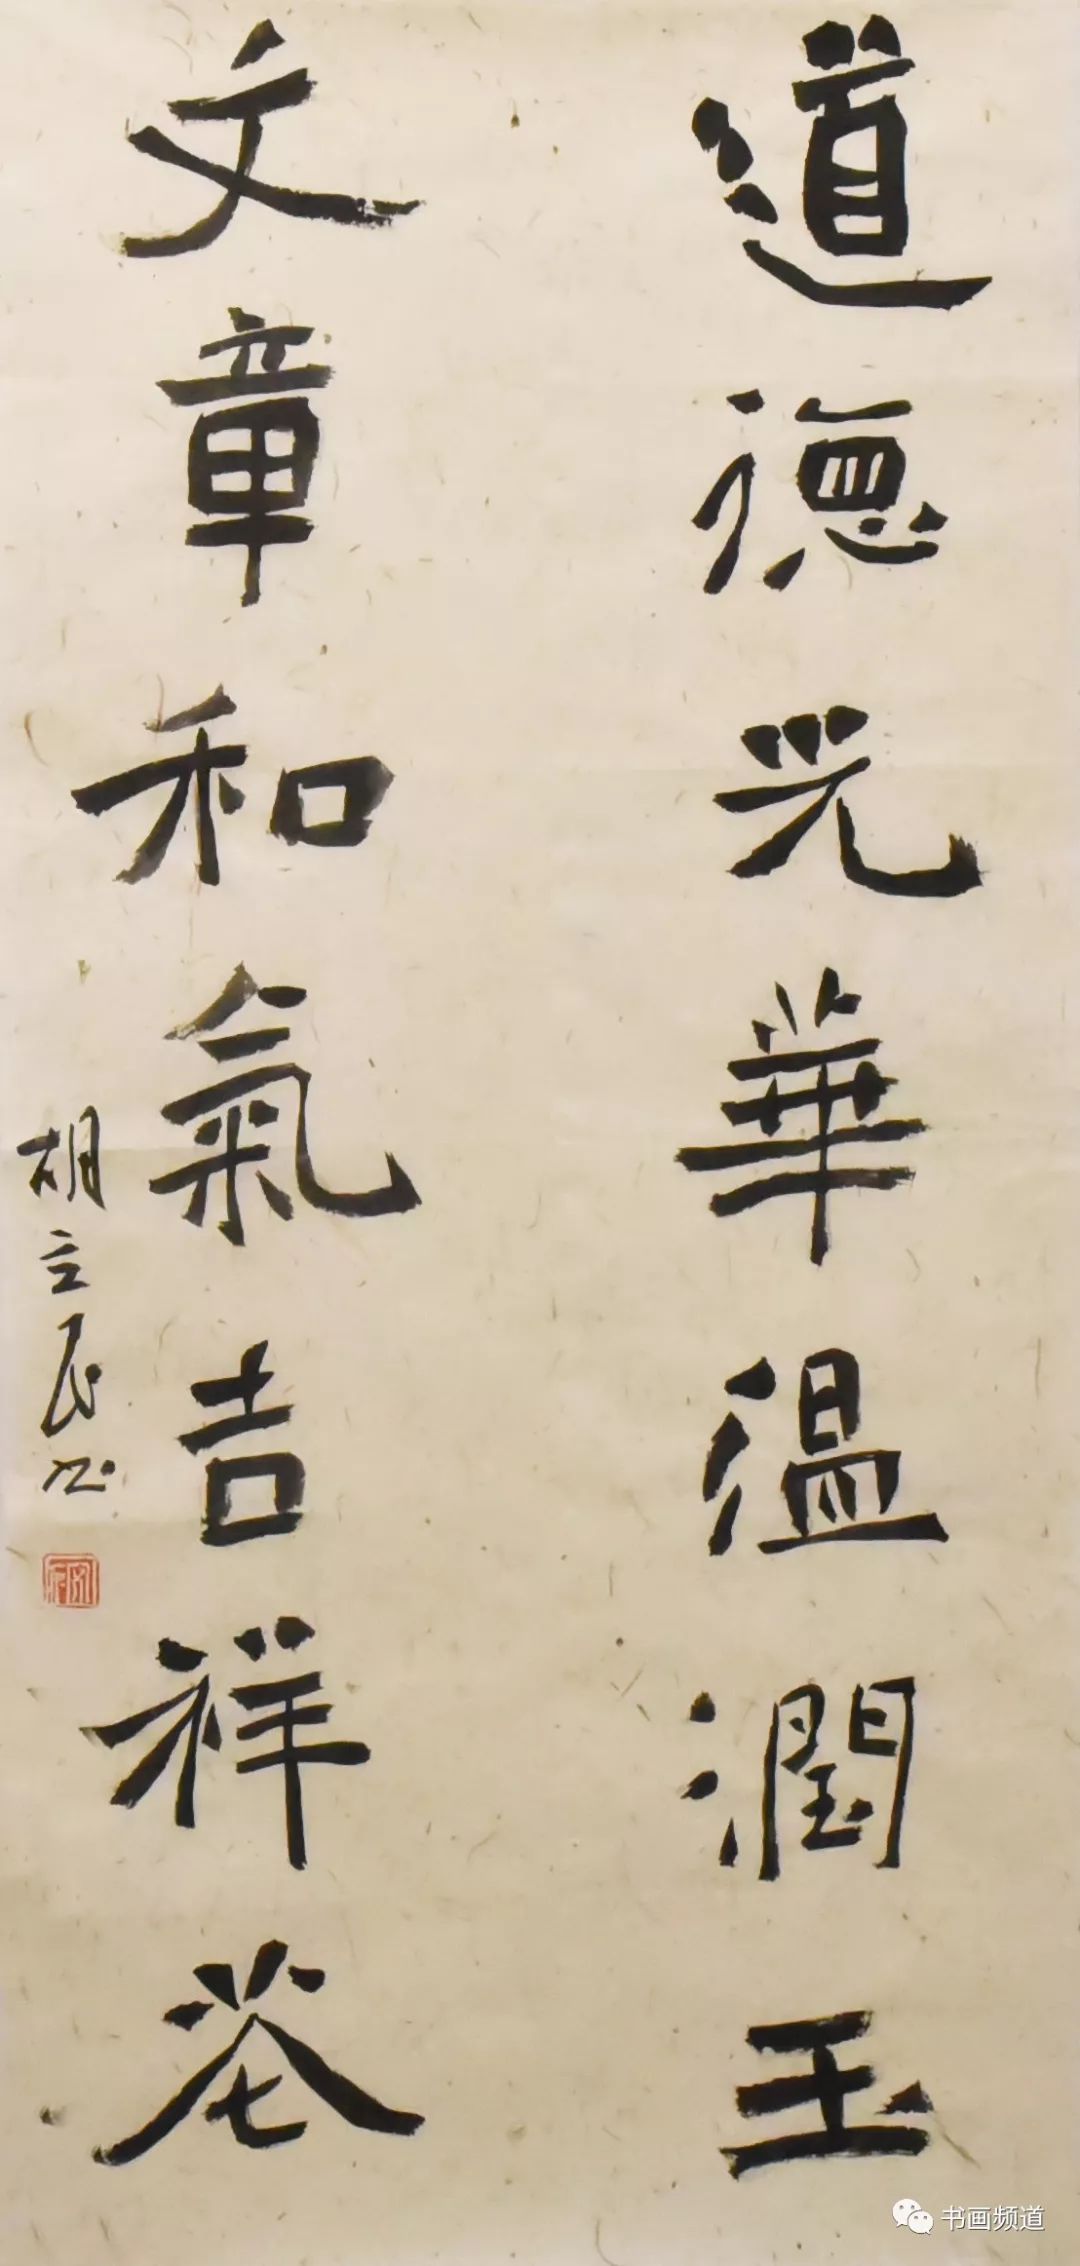 道德光華温潤玉
文章和氣吉祥花
胡立民书
书画频道